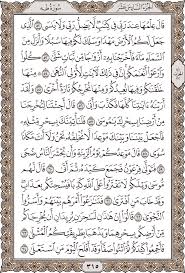 الجزء السادس عشر
سورة طه
قَالَ عِلْمُهَا عِندَ رَبِّي فِي كِتَٰبٍ لَّا يَضِلُّ رَبِّي وَلَا يَنسَى ٥٢ ٱلَّذِي
جَعَلَ لَكُمُ ٱلْأَرْضَ مَهْدًا وَسَلَكَ لَكُمْ فِيهَا سُبُلًا وَأَنزَلَ مِنَ
ٱلسَّمَآءِ مَآءً فَأَخْرَجْنَا بِهِۦٓ أَزْوَٰجًا مِّن نَّبَاتٍ شَتَّىٰ ٥٣ كُلُوا۟
وَٱرْعَوْا۟ أَنْعَٰمَكُمْ إِنَّ فِي ذَٰلِكَ لَءَايَٰتٍ لِّأُو۟لِي ٱلنُّهَىٰ ٥٤ مِنْهَا
خَلَقْنَٰكُمْ وَفِيهَا نُعِيدُكُمْ وَمِنْهَا نُخْرِجُكُمْ تَارَةً أُخْرَىٰ ٥٥
وَلَقَدْ أَرَيْنَٰهُ ءَايَٰتِنَا كُلَّهَا فَكَذَّبَ وَأَبَىٰ ٥٦ قَالَ أَجِئْتَنَا لِتُخْرِجَنَا
مِنْ أَرْضِنَا بِسِحْرِكَ يَٰمُوسَىٰ ٥٧ فَلَنَأْتِيَنَّكَ بِسِحْرٍ مِّثْلِهِۦ
فَٱجْعَلْ بَيْنَنَا وَبَيْنَكَ مَوْعِدًا لَّا نُخْلِفُهُۥ نَحْنُ وَلَآ أَنتَ مَكَانًا
سُوًى ٥٨ قَالَ مَوْعِدُكُمْ يَوْمُ ٱلزِّينَةِ وَأَن يُحْشَرَ ٱلنَّاسُ ضُحًى
٥٩ فَتَوَلَّىٰ فِرْعَوْنُ فَجَمَعَ كَيْدَهُۥ ثُمَّ أَتَىٰ ٦٠ قَالَ لَهُم
مُّوسَىٰ وَيْلَكُمْ لَا تَفْتَرُوا۟ عَلَى ٱللَّهِ كَذِبًا فَيُسْحِتَكُم بِعَذَابٍ
وَقَدْ خَابَ مَنِ ٱفْتَرَىٰ ٦١ فَتَنَٰزَعُوٓا۟ أَمْرَهُم بَيْنَهُمْ وَأَسَرُّوا۟
ٱلنَّجْوَىٰ ٦٢ قَالُوٓا۟ إِنْ هَٰذَٰنِ لَسَٰحِرَٰنِ يُرِيدَانِ أَن يُخْرِجَاكُم
مِّنْ أَرْضِكُم بِسِحْرِهِمَا وَيَذْهَبَا بِطَرِيقَتِكُمُ ٱلْمُثْلَىٰ ٦٣
فَأَجْمِعُوا۟ كَيْدَكُمْ ثُمَّ ٱئْتُوا۟ صَفًّا وَقَدْ أَفْلَحَ ٱلْيَوْمَ مَنِ ٱسْتَعْلَىٰ ٦٤
٣١٥